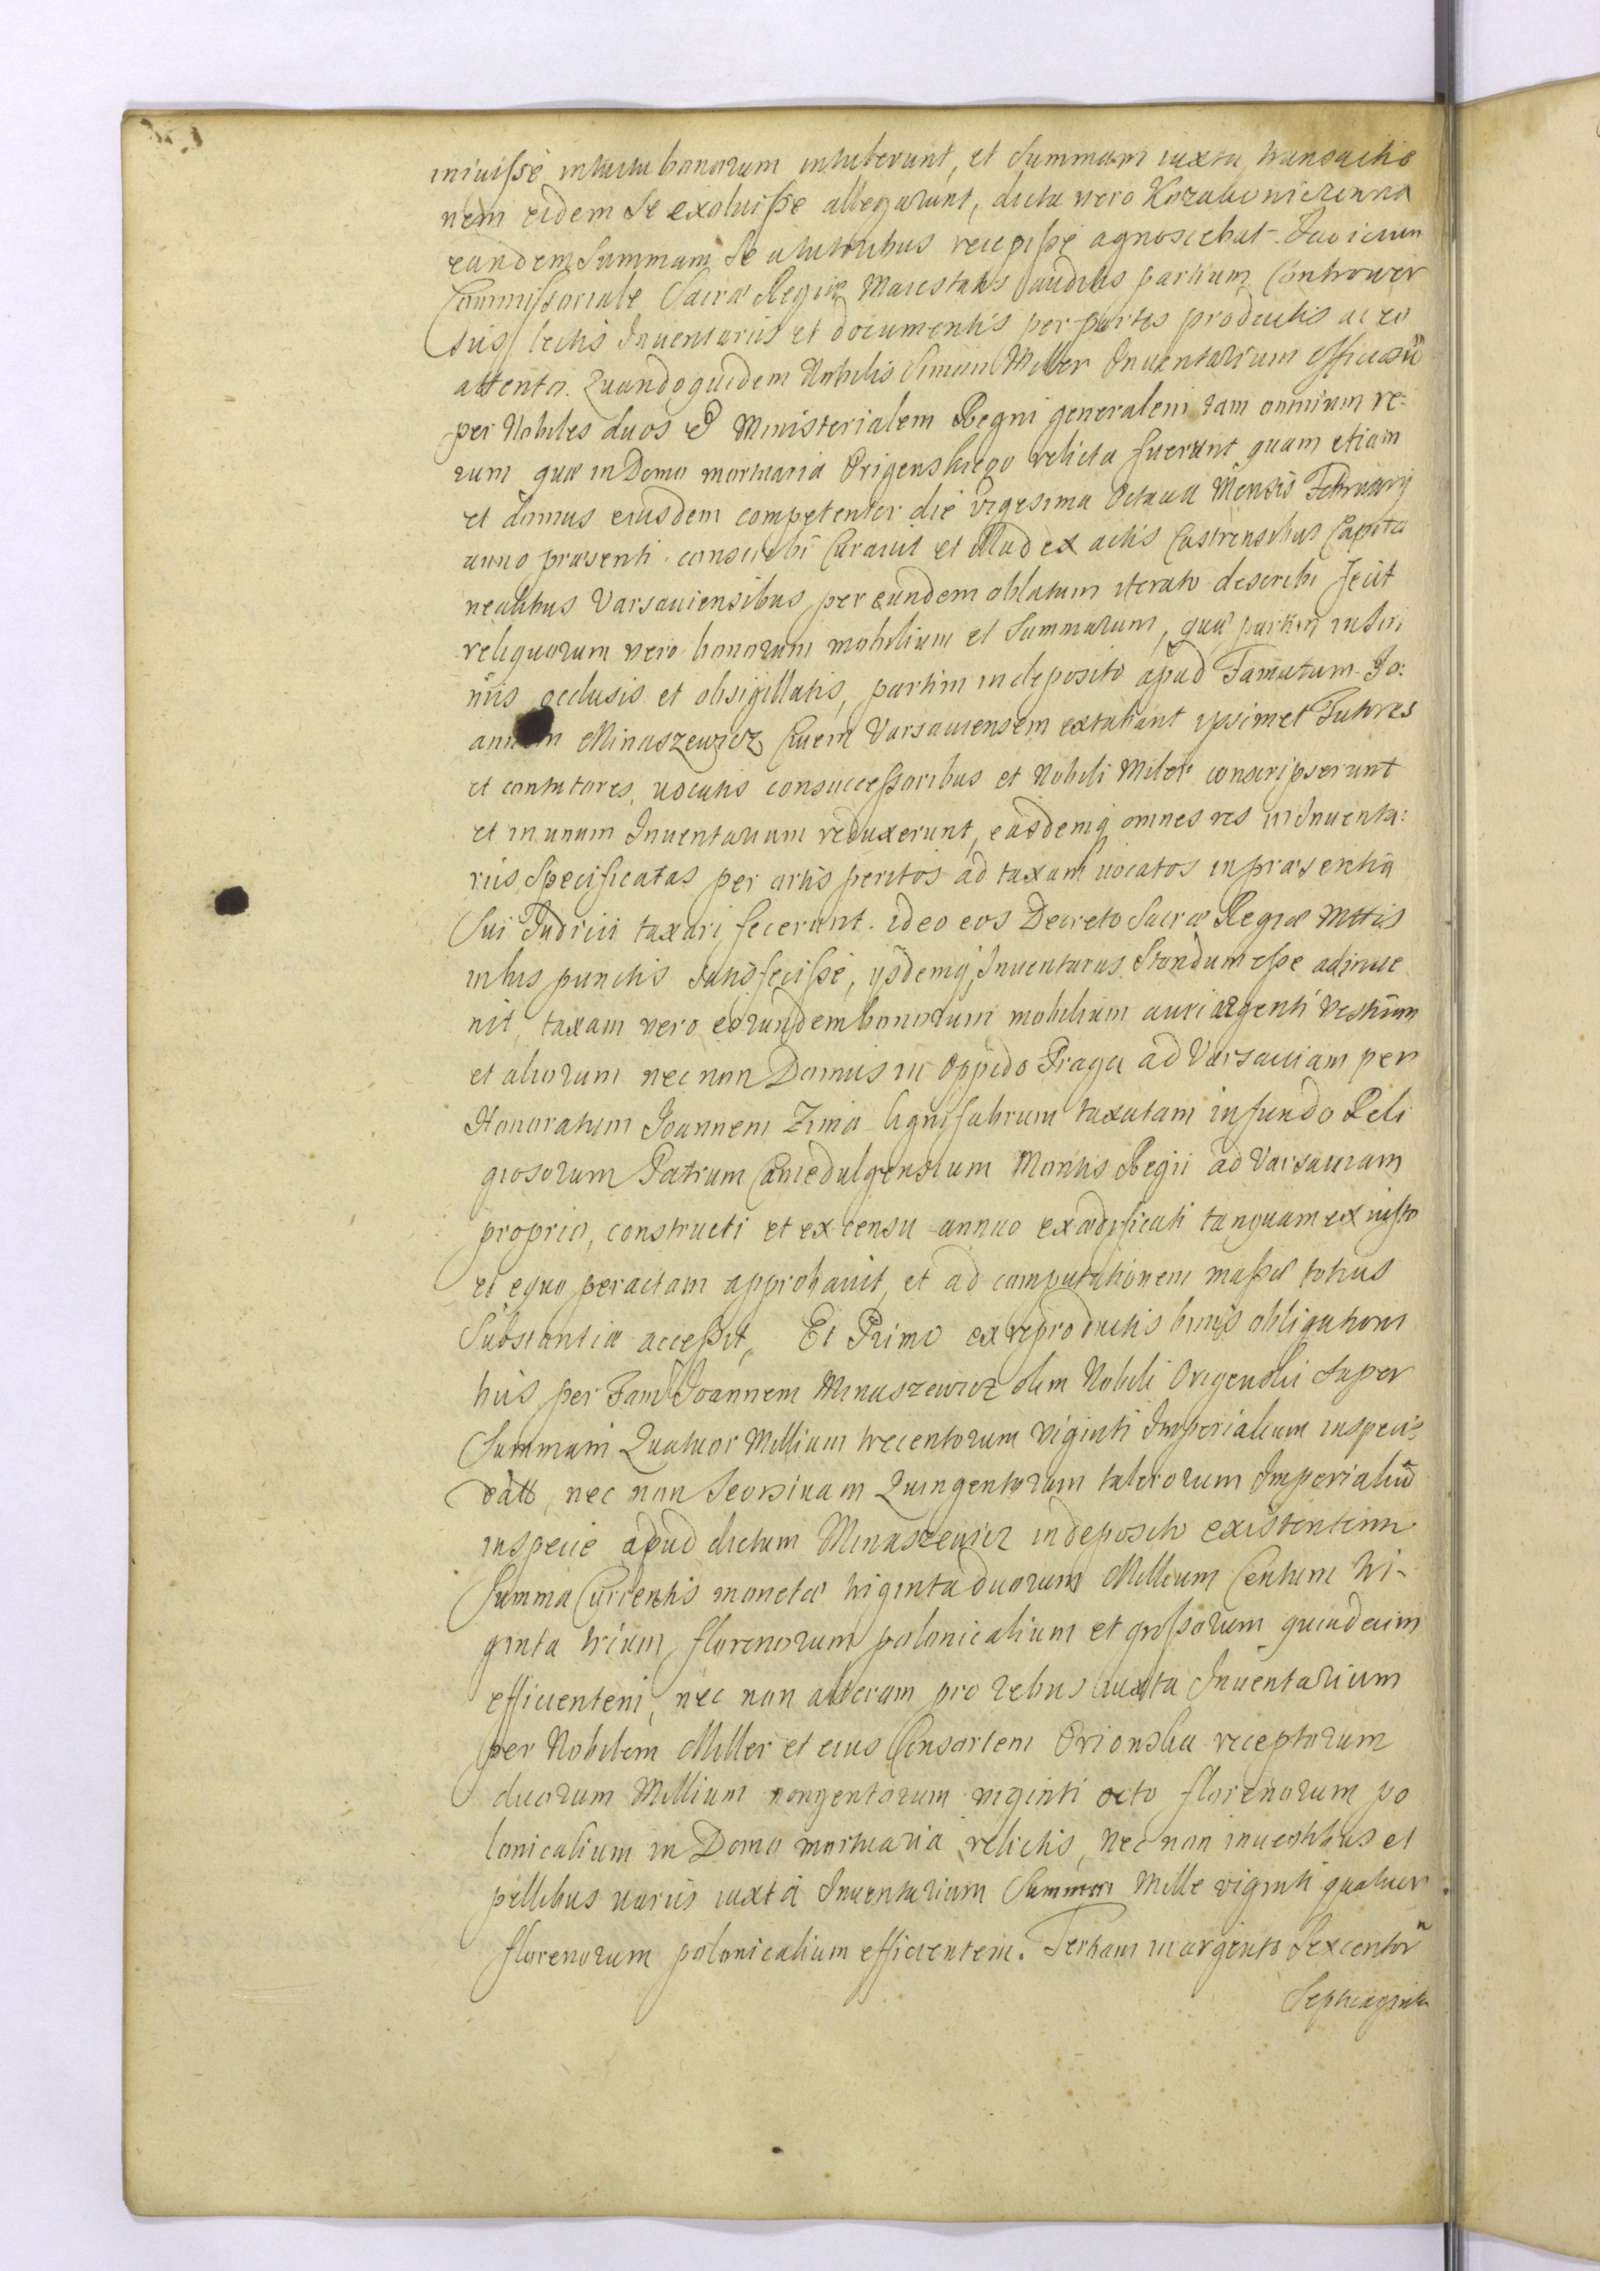 iniuisse intuitu bonorum intulerunt, et Summam iuxta transactio
nem eidem se exoluisse allegarunt, dicta vero Kozakowiczowna
eandem Summam se a tutoribus recepisse agnoscebat. Iudicium
Commissoriale Sacræ Regiæ Maiestatis auditis partium Controver
sijs lectis Inventariis et documentis per partes productis ac eo
attento. Quandoquidem Nobilis Simon Miller Inventarium officiosū
per Nobiles duos et Ministerialem Regni generalem tam omnium re-
rum quæ in Domo mortuaria Origenskiego relicta fuerunt quam etiam
et domus eiusdem competenter die vigesima Octaua Mensis February
anno præsenti conscribi Curauit et illud ex actis Castrensibus Capita
nealibus Varsauiensibus per eundem oblatum iterato describi fecit
reliquorum vero bonorum mobilium et Summarum, quæ partim in Scri
niis occlusis et obsigillatis, partim in deposito apud Famatum Io:
annem Minaszewicz Ciuem Varsauiensem extabant ipsimet Tutores
et contutores, uocatis consuccessoribus et Nobili Miler conscripserunt
et in unum Inuentarium reduxerunt, easdemq omnes res in Inuenta:
riis Specificatas per artis peritos ad taxam uocatos in præsentia
Sui Iudicii taxari fecerunt. ideo eos Decreto Sacræ Regiæ Mttis
in his punctis satisfecisse, ijsdemq Inuentariis Standum esse adinue
nit, taxam vero eorundem bonorum mobilium auri argenti vestium
et aliorum nec non Domus in Oppido Praga ad Varsauiam per
Honoratum Joannem Zima lignifabrum taxatam in fundo Reli
giosorum Patrum Camedulgensium Montis Regii ad Varsauiam
proprio, constructi et ex censu annuo exædificati tanquam ex iusto
et equo peractam approbauit, et ad computationem massæ totius
Substantiæ accessit, Et Primo ex reproductis binis obligationi
bus per Fam Joannem Minaszewicz olim Nobili Origenski super
Summam Quatuor Millium trecentorum viginti Imperialium in specie
datis, nec non Seorsiuam Quingentorum talerorum Imperialiū
in specie apud dictum Minaszewicz in deposito existentem
Summa Currentis monetæ triginta duorum Millium Centum tri-
ginta trium florenorum polonicalium et grossorum quindecim
efficientem, nec non alteram pro rebus iuxta Inuentarium
per Nobilem Miller et eius Consortem Orionska receptorum
duorum Millium nongentorum viginti octo florenorum po
lonicalium in Domo mortuaria relictis, nec non in uestibus et
pellibus uariis iuxta Inuentarium Summam Mille viginti quatuor
florenorum polonicalium efficientem. Tertiam in argento Sexcentorū
Septuaginta